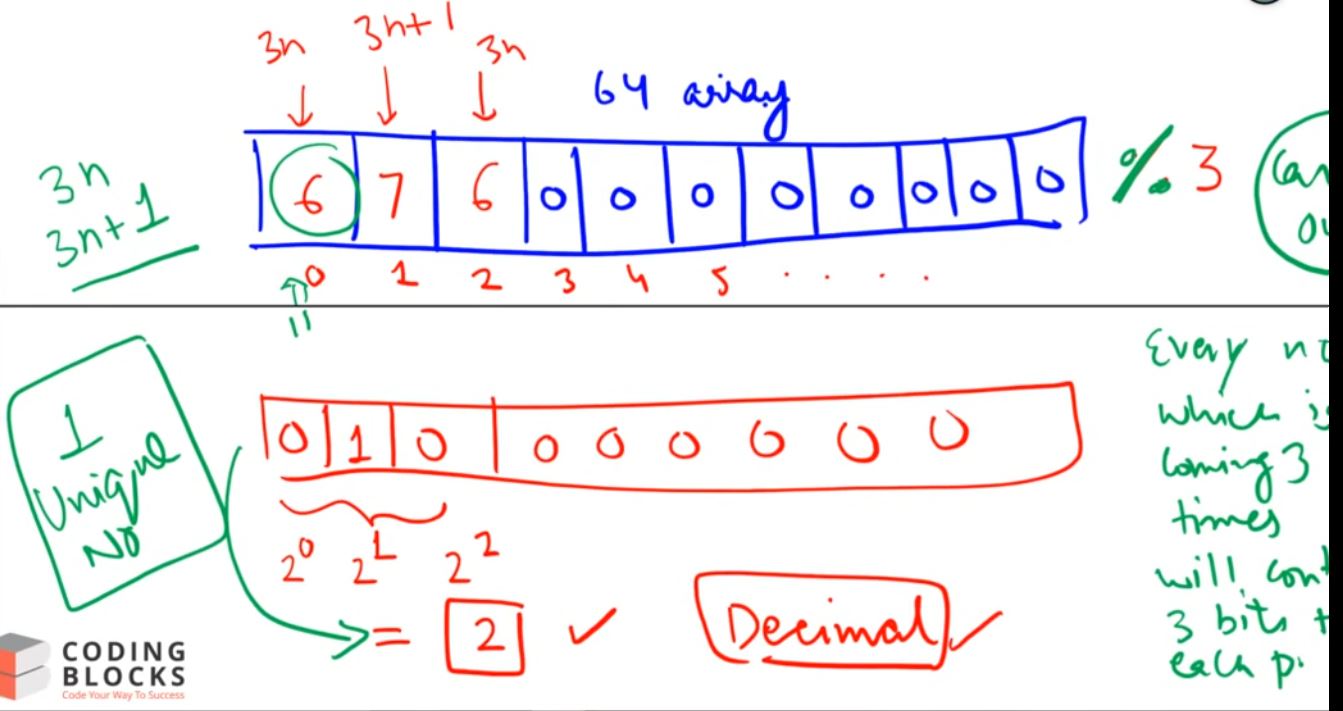 3n 3n+1 3n
64 array
3n
3n+1
6 7 6 0 0 0 0 0 0 0 0 % 3
0 1 2 3 4 5 . . . .
1
Unique
No
0 1 0 0 0 0 0 0 0
2^0 2^1 2^2
= 2
Decimal
Every
which
coming 3
times
will
3 bits
each
CODING
BLOCKS
Code Your Way To Success